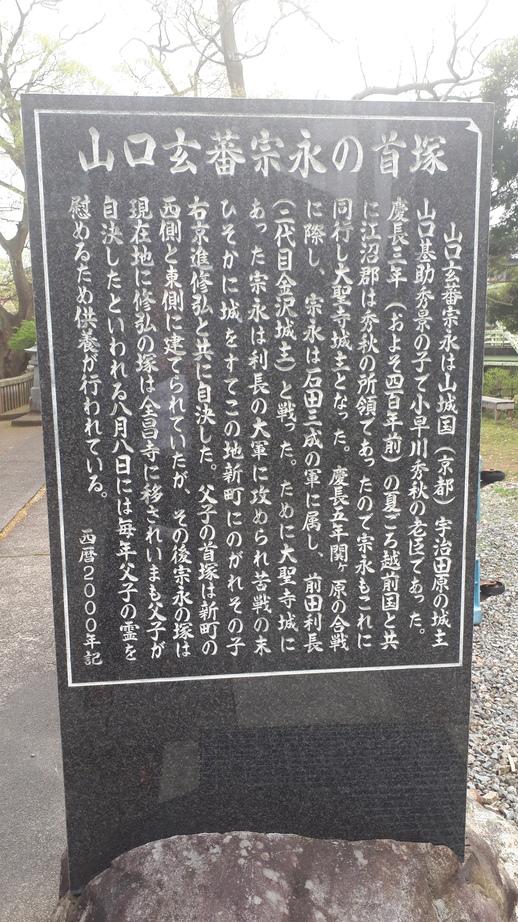 山口玄蕃宗永の首塚
山口玄蕃宗永は山城国（京都）宇治田原の城主
山口甚助秀景の子で小早川秀秋の老臣であった。
慶長三年（およそ四百年前）の夏ごろ越前国と共
に江沼郡は秀秋の所領であったので宗永もこれに
同行し大聖寺城主となった。慶長五年関ヶ原の合戦
に際し、宗永は石田三成の軍に属し、前田利長
（二代目金沢城主）と戦った。ために大聖寺城に
あった宗永は利長の大軍に攻められ苦戦の末
ひそかに城をすてこの地新町にのがれその子
右京進修弘と共に自決した。父子の首塚は新町の
西側と東側に建てられていたが、その後宗永の塚は
現在地に修弘の塚は全昌寺に移されいまも父子が
自決したといわれる八月八日には毎年父子の霊を
慰めるため供養が行われている。
西暦２０００年記